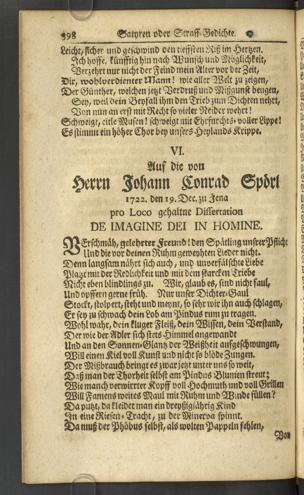 398 Satyren oder Straff-Gedichte.
Leicht, sicher und geschwind den tieffsten Riß im Hertzen.
Ich hoffe, künfftig hin nach Wunsch und Möglichkeit,
Verzehrt nur nicht der Feind mein Alter vor der Zeit,
Dir, wohlverdienter Mann! wie aller Welt zu zeigen,
Der Günther, welchen jetzt Verdruß und Mißgunst beugen,
Sey, weil dein Beyfall ihm den Trieb zum Dichten nehrt,
Von nun an erst mit Recht so vieler Neider wehrt!
Schweigt, eitle Musen! schweigt mit Ehrfurchts-voller Lippe!
Es stimmt ein höher Chor bey unsers Heylands Krippe.
VI.
Auf die von
Herrn Johann Conrad Spörl
1722. den 19. Dec. zu Jena
pro Loco gehaltne Dissertation
DE IMAGINE DEI IN HOMINE.
Verschmäh, gelehrter Freund! den Spätling unsrer Pflicht
Und die vor deinen Ruhm geweyhten Lieder nicht.
Denn langsam nährt sich auch, und unverfälschte Liebe
Plagt mit der Redlichkeit und mit dem starcken Triebe
Nicht eben blindlings zu. Wir, glaub es, sind nicht faul,
Und opffern gerne früh. Nur unser Dichter-Gaul
Stockt, stolpert, steht und meynt, so sehr wir ihn auch schlagen,
Er sey zu schwach dein Lob am Pindus rum zu tragen.
Wohl wahr, dein kluger Fleiß, dein Wissen, dein Verstand,
Der wie der Adler sich stets Himmel angewandt
Und an den Sonnen-Glantz der Weißheit aufgeschwungen,
Will einen Kiel voll Kunst und nicht so blöde Zungen.
Der Mißbrauch bringt es zwar jetzt unter uns so weit,
Daß man der Thorheit selbst am Pindus Blumen streut;
Wie manch verwirrter Kopff voll Hochmuth und voll Grillen
Will Famens weites Maul mit Ruhm und Winde füllen?
Da putzt, da kleidet man ein dreyßigjährig Kind
In eine Riesen-Tracht, zu der Minerva spinnt.
Da muß der Phöbus selbst, als wolten Pappeln fehlen,
Von